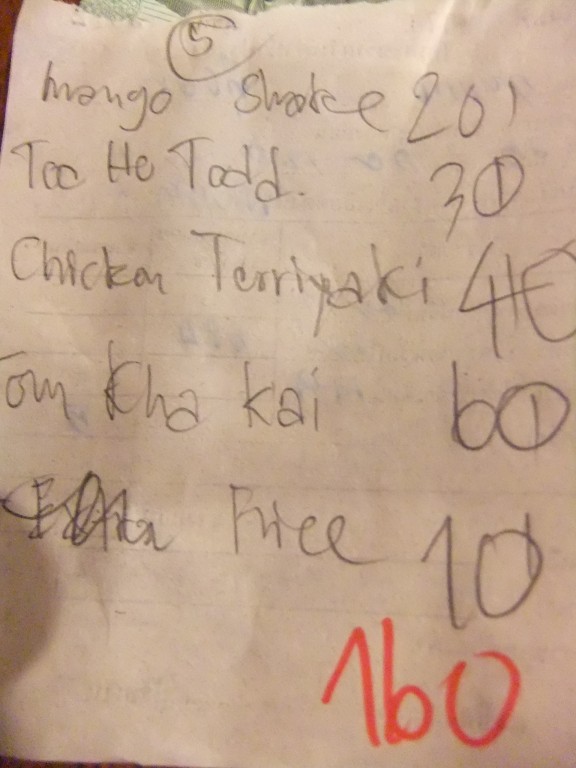 5
mango Shake 20
Too He Todd. 30
Chicken Terriyaki 40
Tom Kha kai 60
Extra Rice 10
160